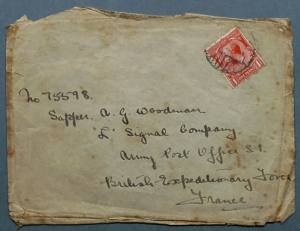 No 75598.
Sapper. A. G. Woodman
"L" Signal Company
Army Post Office S.1.
British Expeditionary Force
France